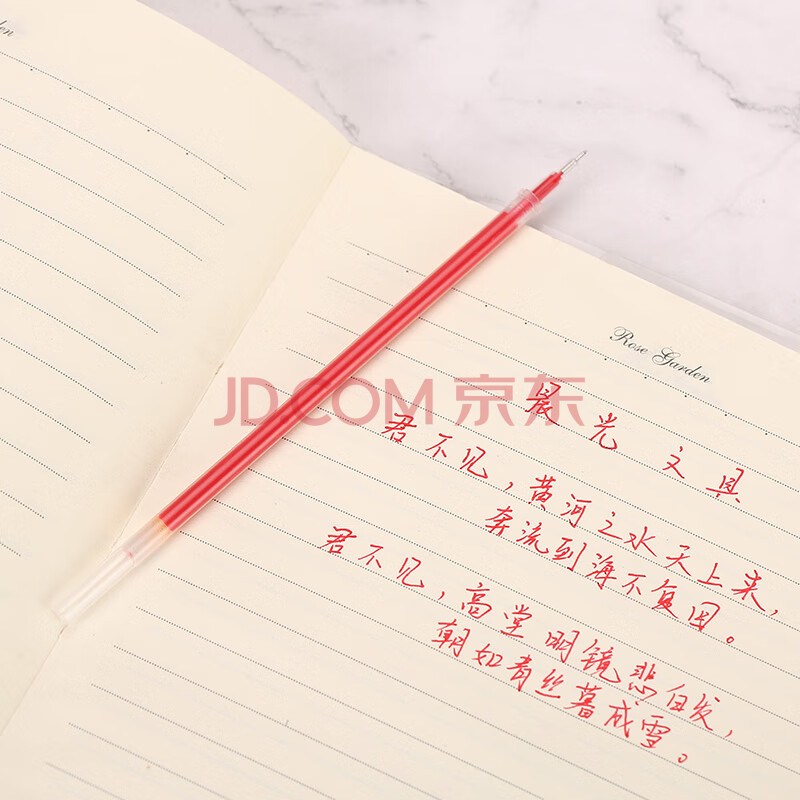 den
Rose Garden
JD.COM 京东
晨光文具
君不见,黄河之水天上来,
奔流到海不复回。
君不见,高堂明镜悲白发,
朝如青丝暮成雪。